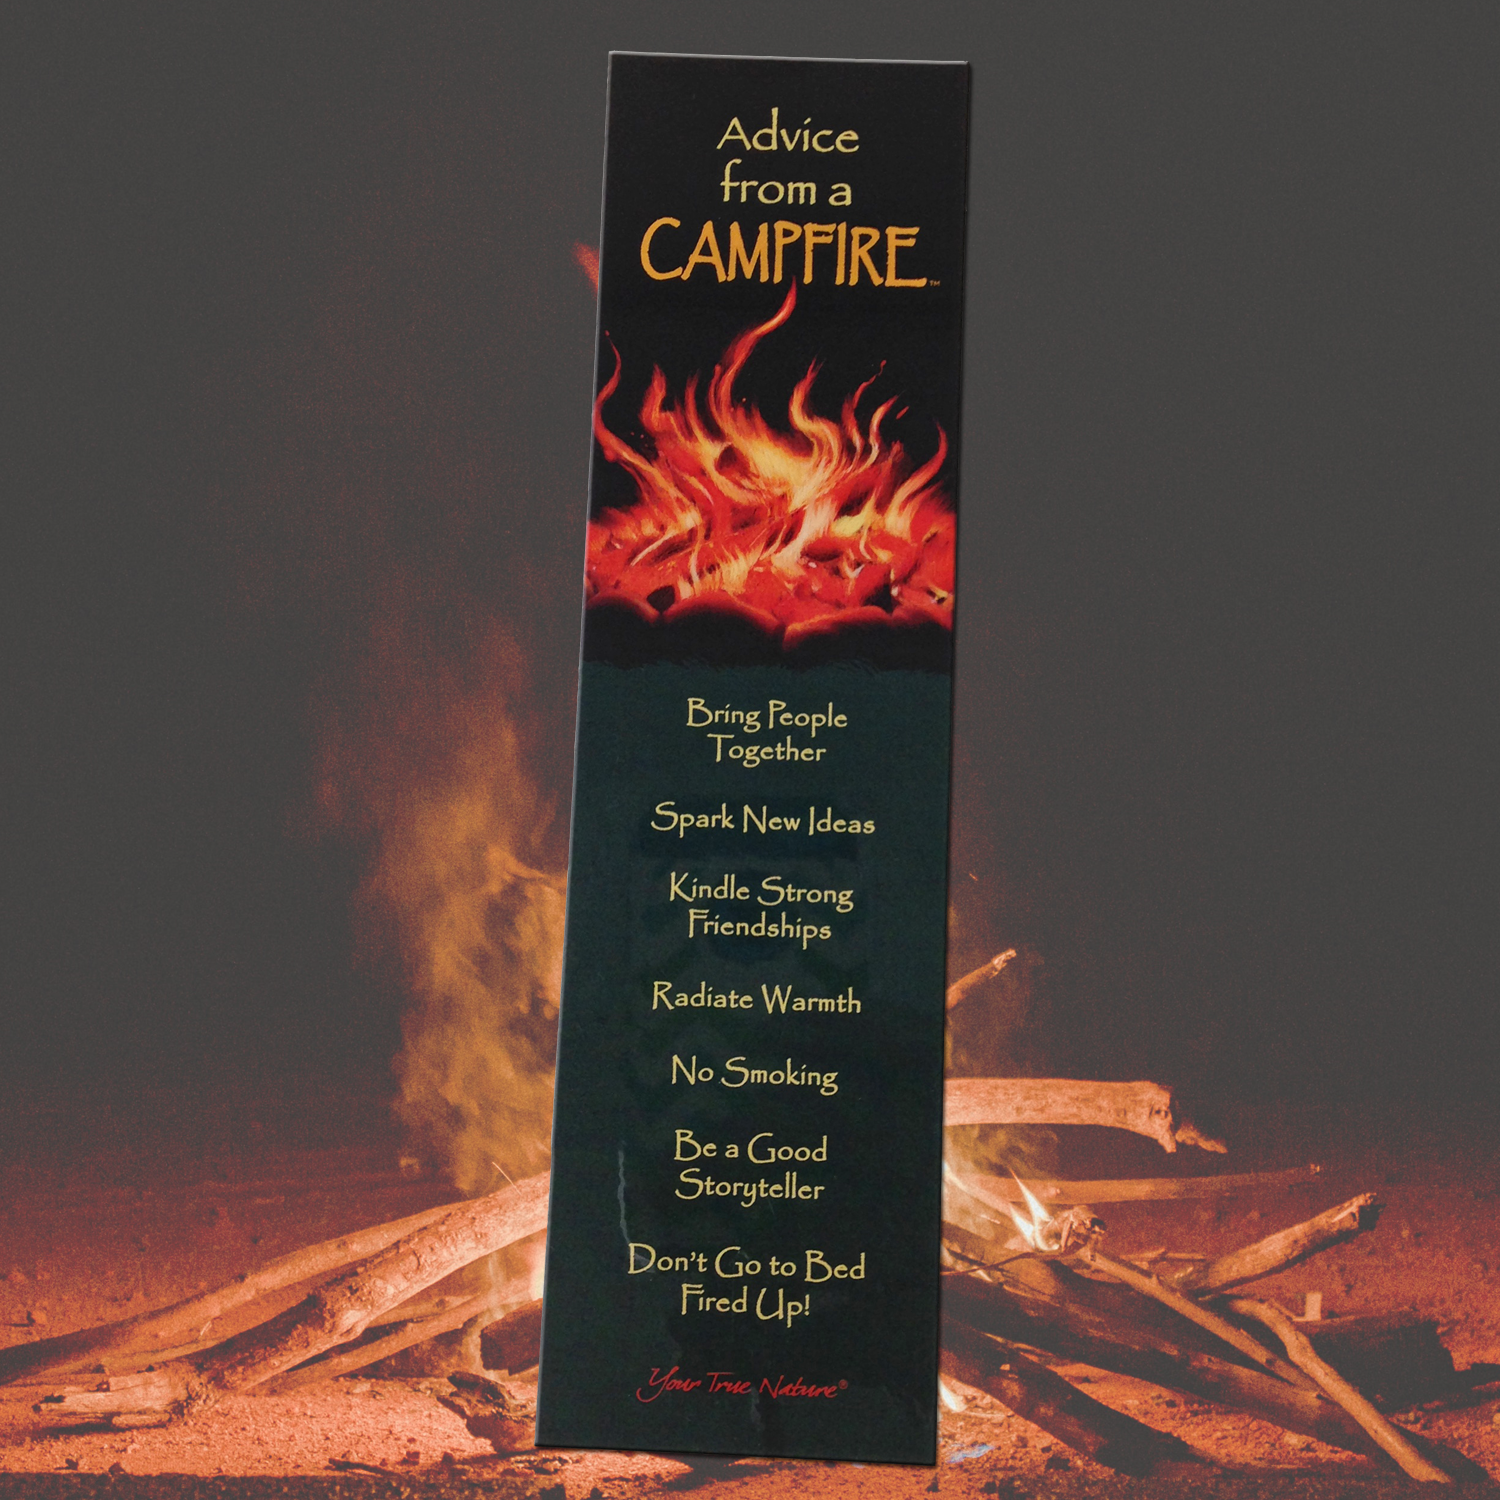 Advice
from a
CAMPFIRE™
Bring People
Together
Spark New Ideas
Kindle Strong
Friendships
Radiate Warmth
No Smoking
Be a Good
Storyteller
Don't Go to Bed
Fired Up!
Your True Nature®